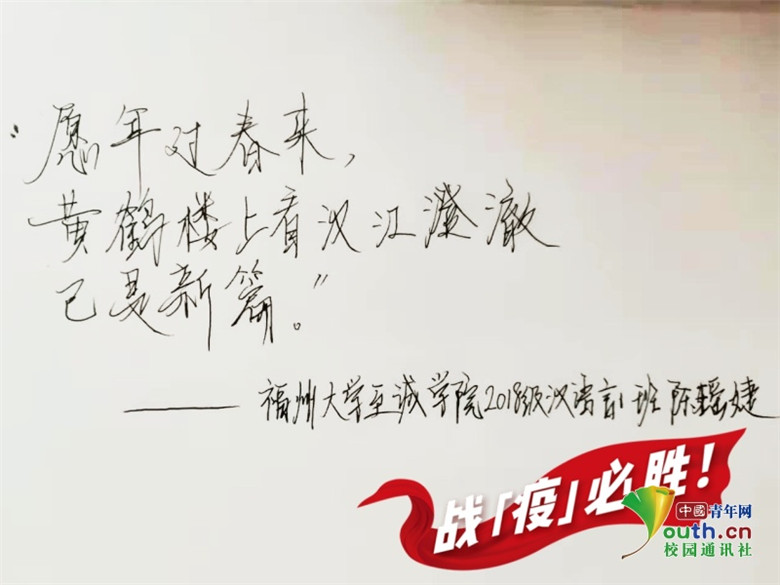 “愿年过春来，
黄鹤楼上看汉江澄澈
已是新篇。”
——福州大学至诚学院2018级汉语言1班 陈瑶婕
战「疫」必胜！
中國青年网
youth.cn
校园通讯社